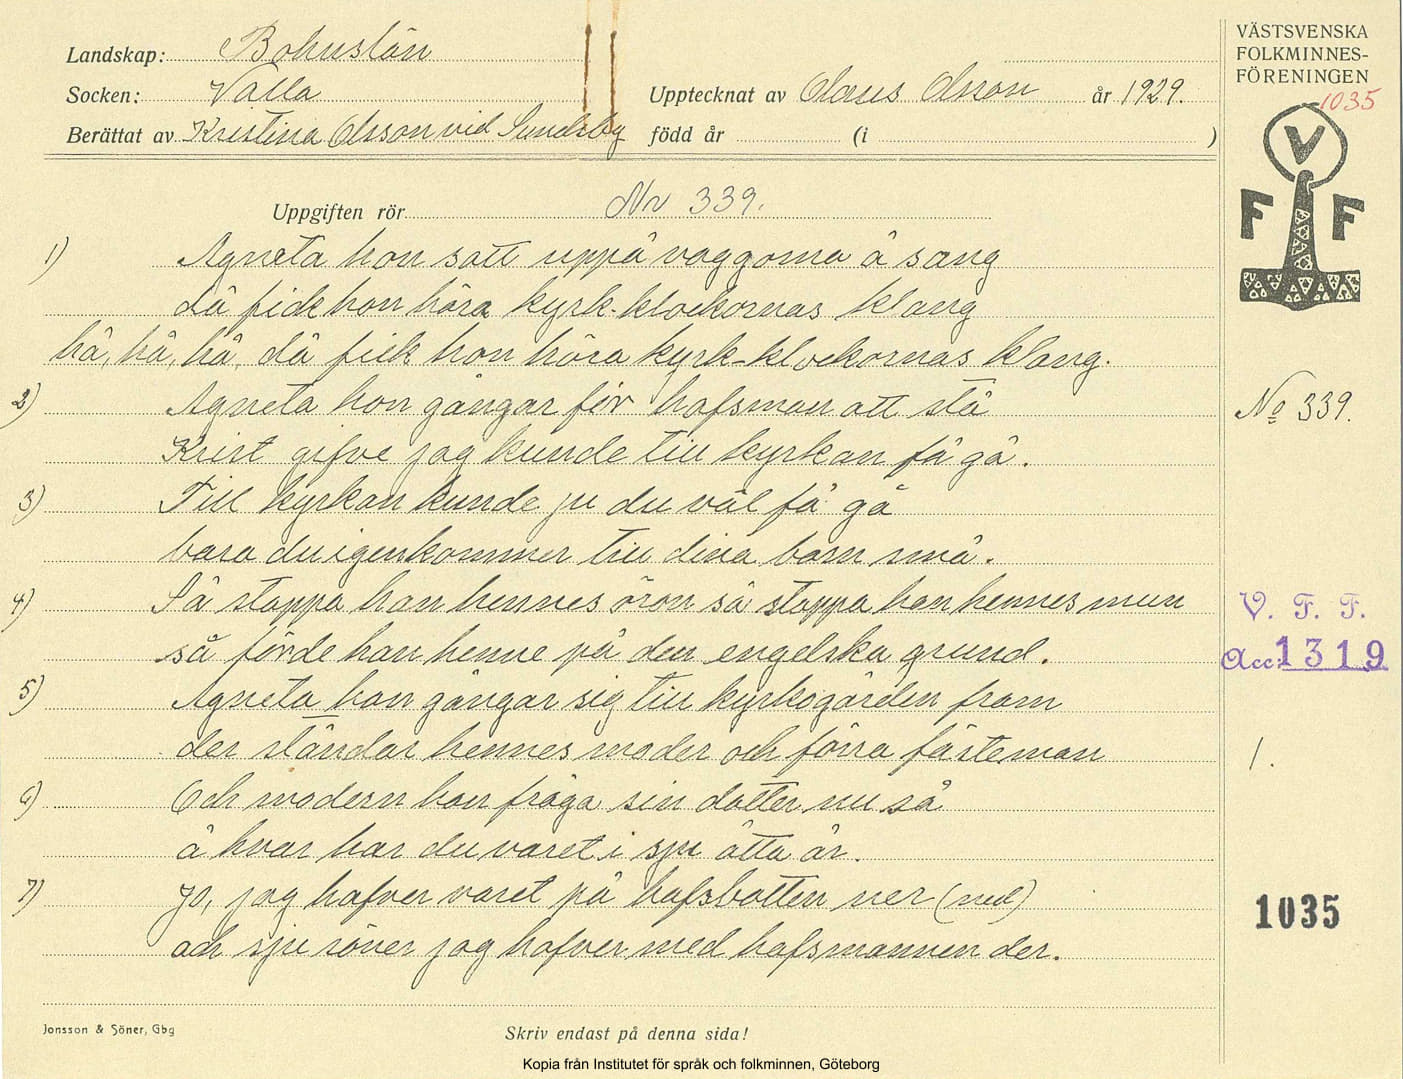 Landskap: Bohuslän
Socken: Valla
Upptecknat av Claus Olsson år 1929.
Berättat av Kristina Olsson vid Sundsby född år (i )
VÄSTSVENSKA
FOLKMINNES-
FÖRENINGEN
1035
V
F F
Uppgiften rör Nr 339.
1) Agneta hon satt uppå vaggorna å sang
då fick hon höra kyrk-klockornas klang
hå, hå, hå, då fick hon höra kyrk-klockornas klang.
2) Agneta hon gångar för hafsman att stå
Krist gifve jag kunde till kyrkan få gå.
No 339.
3) Till kyrkan kunde ju du väl få gå
bara du igenkommer till dina barn små.
4) Så stoppa han hennes öron så stoppa han hennes mun
så förde han henne på den engelska grund.
V. F. F.
Acc: 1319
5) Agneta hon gångar sig till kyrkogården fram
der ståndar hennes moder och förra fästeman
1.
6) Och modern hon fråga sin dotter nu så
å hvar har du varet i sju åtta år.
7) Jo, jag hafver varet på hafsbotten ner (ned)
och sju söner jag hafver med hafsmannen der.
1035
Jonsson & Söner, Gbg
Skriv endast på denna sida!
Kopia från Institutet för språk och folkminnen, Göteborg